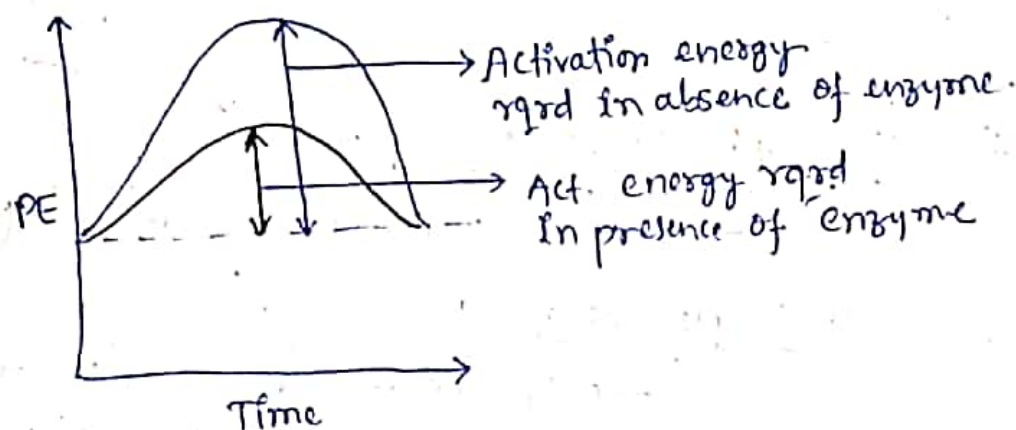 Activation energy
rqrd in absence of enzyme.
Act. energy rqrd.
In presence of enzyme
PE
Time